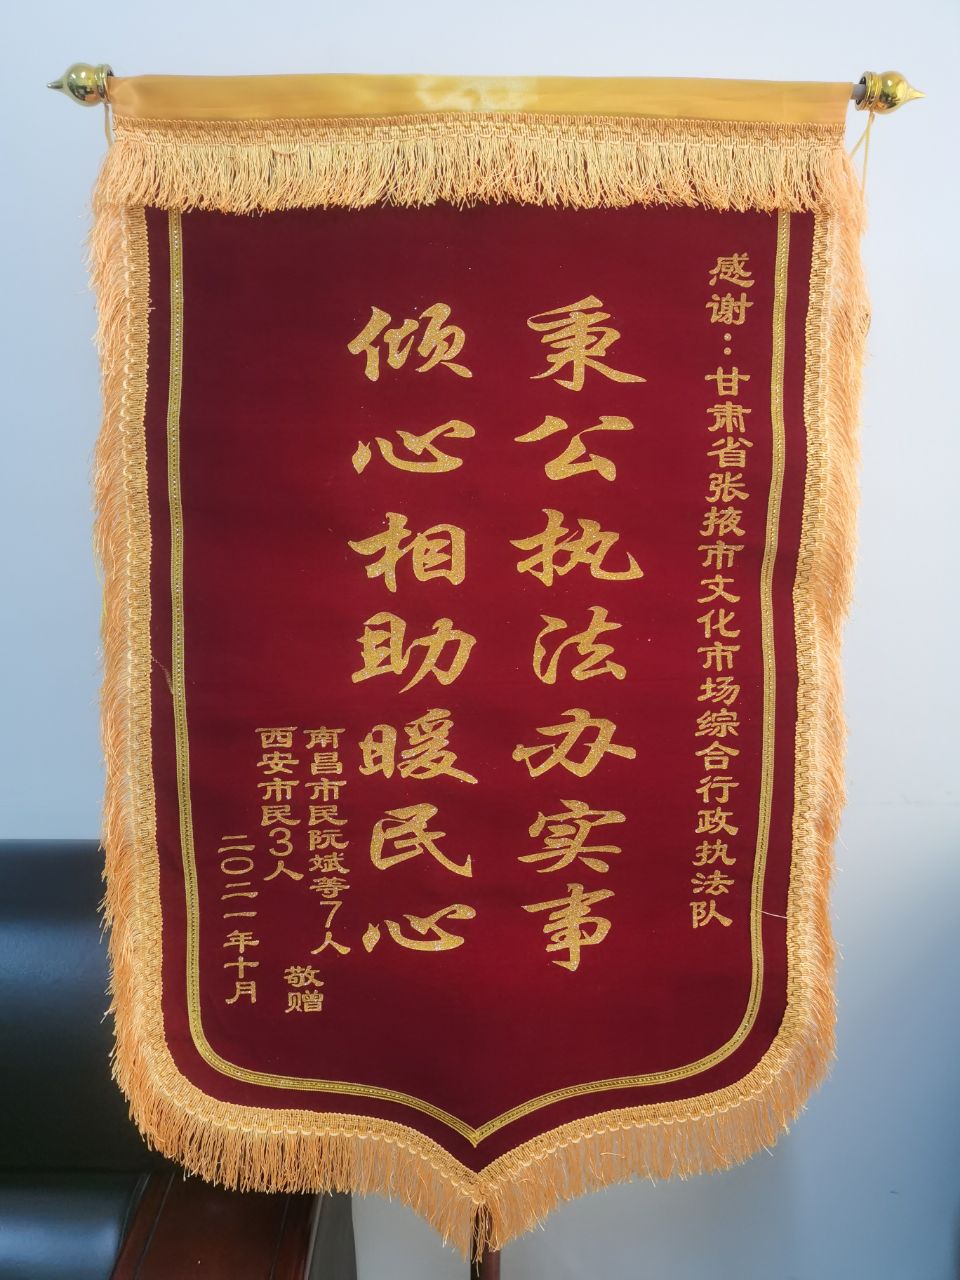 感谢：甘肃省张掖市文化市场综合行政执法队
秉公执法办实事
倾心相助暖民心
南昌市民阮斌等7人
西安市民3人
敬赠
二〇二一年十月